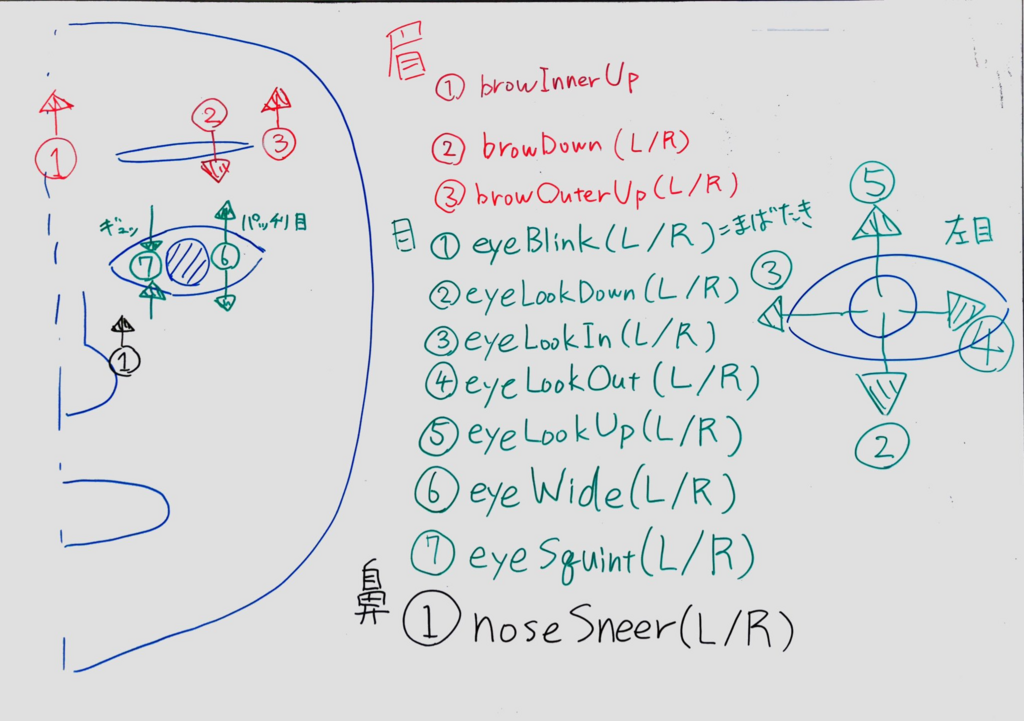 眉
① browInnerUp
② browDown (L/R)
③ browOuterUp (L/R)
目
① eyeBlink (L/R) = まばたき
② eyeLookDown (L/R)
③ eyeLookIn (L/R)
④ eyeLookOut (L/R)
⑤ eyeLookUp (L/R)
⑥ eyeWide (L/R)
⑦ eyeSquint (L/R)
鼻
① noseSneer (L/R)
①
②
③
ギュッ
パッチリ目
⑦
⑥
①
⑤
左目
③
④
②